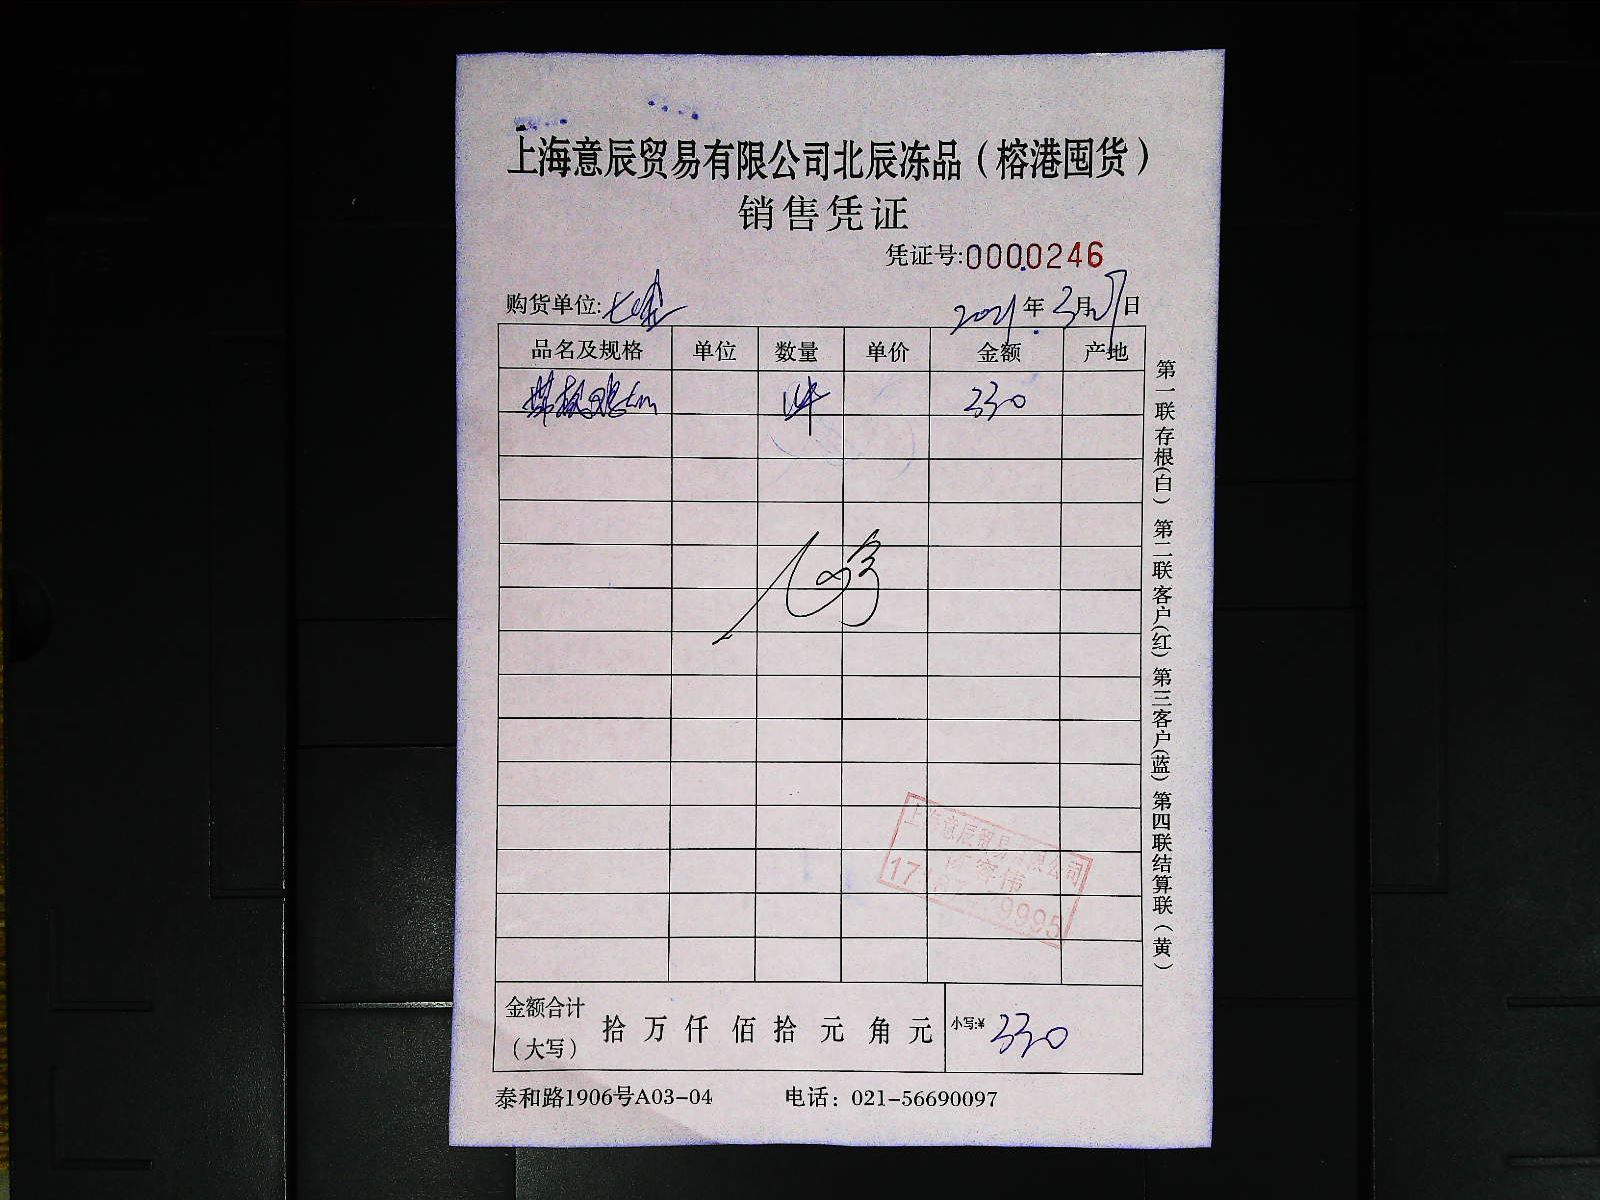 上海意辰贸易有限公司北辰冻品（榕港囤货）
销售凭证
凭证号:0000246
购货单位:
2021年3月27日
品名及规格 单位 数量 单价 金额 产地
1件 330
上海意辰贸易有限公司
9995
金额合计（大写） 拾 万 仟 佰 拾 元 角 元 小写:¥ 330
泰和路1906号A03-04 电话：021-56690097
第一联存根(白) 第二联客户(红) 第三客户(蓝) 第四联结算联(黄)